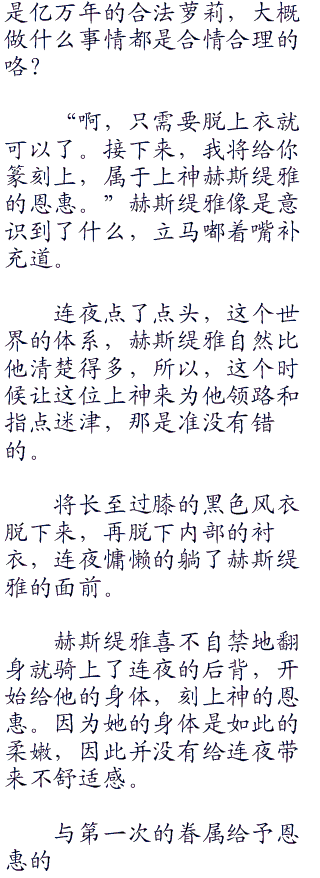 是亿万年的合法萝莉，大概
做什么事情都是合情合理的
咯？
“啊，只需要脱上衣就
可以了。接下来，我将给你
篆刻上，属于上神赫斯缇雅
的恩惠。”赫斯缇雅像是意
识到了什么，立马嘟着嘴补
充道。
连夜点了点头，这个世
界的体系，赫斯缇雅自然比
他清楚得多，所以，这个时
候让这位上神来为他领路和
指点迷津，那是准没有错
的。
将长至过膝的黑色风衣
脱下来，再脱下内部的衬
衣，连夜慵懒的躺了赫斯缇
雅的面前。
赫斯缇雅喜不自禁地翻
身就骑上了连夜的后背，开
始给他的身体，刻上神的恩
惠。因为她的身体是如此的
柔嫩，因此并没有给连夜带
来不舒适感。
与第一次的眷属给予恩
惠的